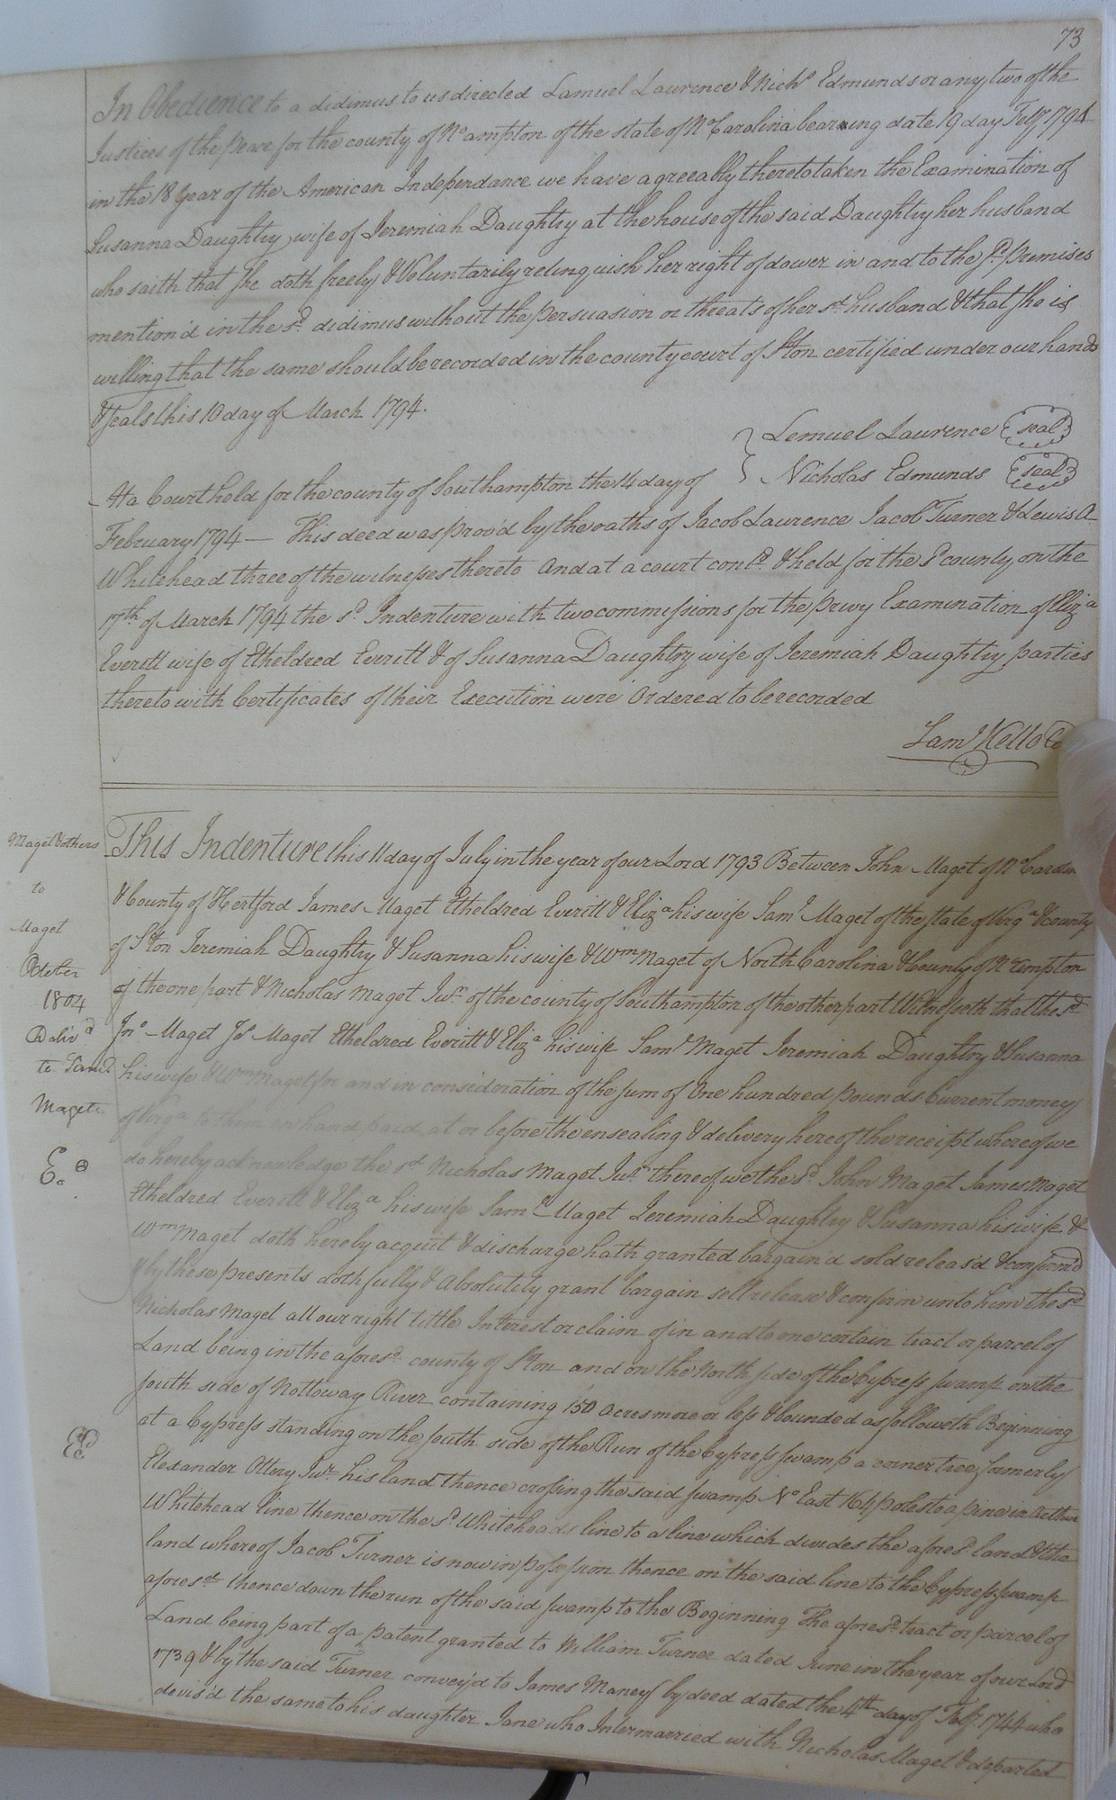 73
In Obedience to a didimus to us directed Lamuel Laurence & Nichs Edmunds or any two of the
Justices of the peace for the county of No ampton of the state of No Carolina bearing date 19 day Feby 1794
in the 18 year of the American Independance we have agreeably thereto taken the Examination of
Susanna Daughtry wife of Jeremiah Daughtry at the house of the said Daughtry her husband
who saith that she doth freely & Voluntarily relinquish her right of dower in and to the sd premises
mention'd in the sd didimus without the persuasion or threats of her sd husband & that she is
willing that the same should be recorded in the county court of Ston certified under our hands
& seals this 10 day of March 1794.
Lemuel Laurence (seal)
Nicholas Edmunds (seal)
At a Court held for the county of Southampton the 14 day of
February 1794 — This deed was prov'd by the oaths of Jacob Laurence Jacob Turner & Lewis A
Whitehead three of the witnesses thereto And at a court contd & held for the sd county on the
17th of March 1794 the sd Indenture with two commissions for the privy Examination of Eliza
Everitt wife of Etheldred Everitt & of Susanna Daughtry wife of Jeremiah Daughtry parties
thereto with Certificates of their Execution were Ordered to be recorded
Saml Kello
Maget & others
to
Maget
October
1804
Deliv'd
to Saml
Maget
Eo
This Indenture this 11 day of July in the year of our Lord 1793 Between John Maget of No Carolin
& County of Hertford James Maget Etheldred Everitt & Eliza his wife Saml Maget of the state of Virga & county
of Ston Jeremiah Daughtry & Susanna his wife & Wm Maget of North Carolina & County of No ampton
of the one part & Nicholas Maget Junr of the county of Southampton of the other part Witnesseth that the sd
Jno Maget Js Maget Etheldred Everitt & Eliza his wife Saml Maget Jeremiah Daughtry & Susanna
his wife & Wm Maget for and in consideration of the sum of One hundred pounds Current money
of Virga to them in hand paid at or before the ensealing & delivery hereof the receipt whereof we
do hereby acknowledge the sd Nicholas Maget Junr thereof we the sd John Maget James Maget
Etheldred Everitt & Eliza his wife Saml Maget Jeremiah Daughtry & Susanna his wife &
Wm Maget doth hereby acquit & discharge hath granted bargain'd sold releas'd & confirm'd
& by these presents doth fully & Absolutely grant bargain sell release & confirm unto him the sd
Nicholas Maget all our right tittle Interest or claim of in and to one certain tract or parcel of
Land being in the aforesd county of Ston and on the North side of the Cypress swamp on the
south side of Nottoway River containing 150 acres more or less & bounded as followeth Beginning
at a Cypress standing on the south side of the Run of the Cypress swamp a corner tree formerly
Elexander Ottery Junr his land thence crossing the said swamp No East 164 poles to a pine in Arthur
Whitehead line thence on the sd Whiteheads line to a line which divides the afores land & the
land whereof Jacob Turner is now in possession thence on the said line to the Cypress swamp
aforesd thence down the run of the said swamp to the Beginning The aforesd tract or parcel of
Land being part of a patent granted to William Turner dated June in the year of our Lord
1739 & by the said Turner convey'd to James Maney by deed dated the 4th day of Feby 1744 who
devis'd the same to his daughter Jane who Intermarried with Nicholas Maget & departed